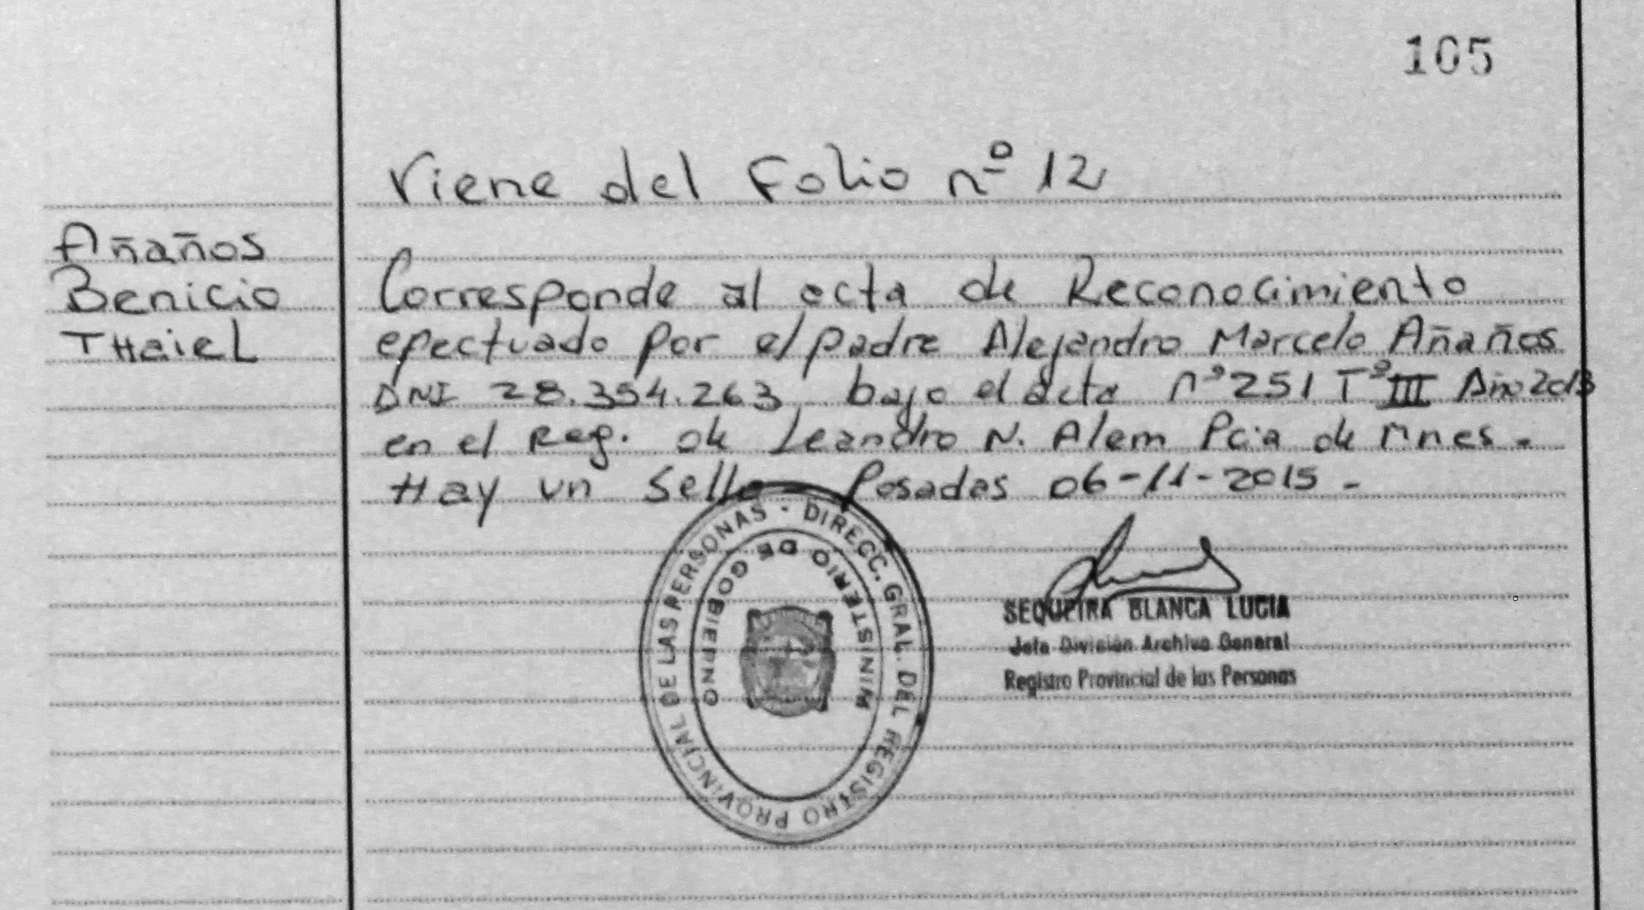 105
Viene del Folio nº 12
Añaños
Benicio
THaieL
Corresponde al acta de Reconocimiento
efectuado por el padre Alejandro Marcelo Añaños
DNI 28.354.263 bajo el acta nº 251 Tº III Año 2013
en el Reg. de Leandro N. Alem Pcia de Mnes.
Hay un sello Posadas 06-11-2015 -
DIRECC. GRAL. DEL REGISTRO PROVINCIAL DE LAS PERSONAS -
MINISTERIO DE GOBIERNO
SEQUEIRA BLANCA LUCIA
Jefe División Archivo General
Registro Provincial de las Personas